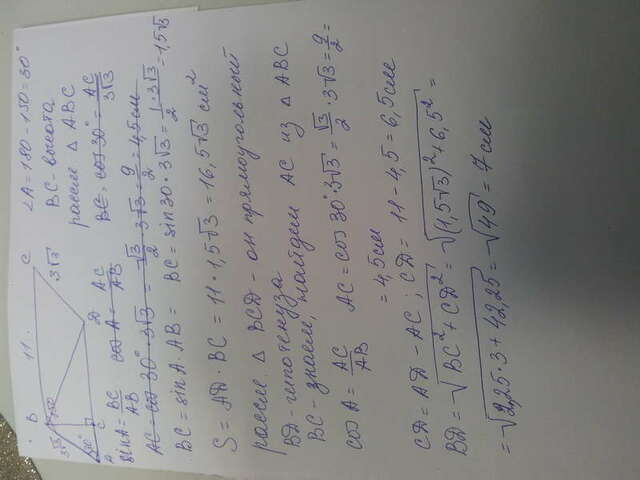 B 11. C
3√3 150° 3√3
A 30° C D
∠A = 180 - 150 = 30°
BC - высота
рассм △ ABC
BC; cos 30° = AC/3√3
sin A = BC/AB cos A = AC/AB
AC = cos 30° · 3√3 = √3/2 · 3√3 = 9/2 = 4,5 см
BC = sin A · AB = BC = sin 30 · 3√3 = 1·3√3/2 = 1,5√3
S = AD · BC = 11 · 1,5√3 = 16,5√3 см²
рассм △ BCD - он прямоугольный
BD - гипотенуза
BC - знаем, найдем AC из △ ABC
cos A = AC/AB AC = cos 30° · 3√3 = √3/2 · 3√3 = 9/2 =
= 4,5 см
CD = AD - AC; CD = 11 - 4,5 = 6,5 см
BD = √BC² + CD² = √(1,5√3)² + 6,5² =
= √2,25 · 3 + 42,25 = √49 = 7 см